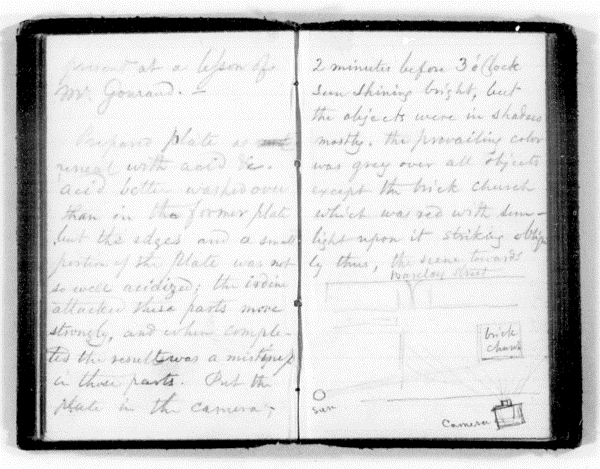 present at a lesson of
Mr. Gouraud. –
Prepared plate as
reneral with acid &c.
acid better washed over
than in the former plate
but the edges and a small
portion of the plate was not
so well acidized; the iodine
attacked these parts more
strongly, and when comple-
ted the result was a mistiness
in those parts. Put the
plate in the camera,
2 minutes before 3 o'Clock
sun shining bright, but
the objects were in shadow
mostly. the prevailing color
was grey over all objects
except the brick church
which was red with sun-
light upon it striking oblique
ly thus, the scene towards
Barclay Street
brick
church
sun
Camera